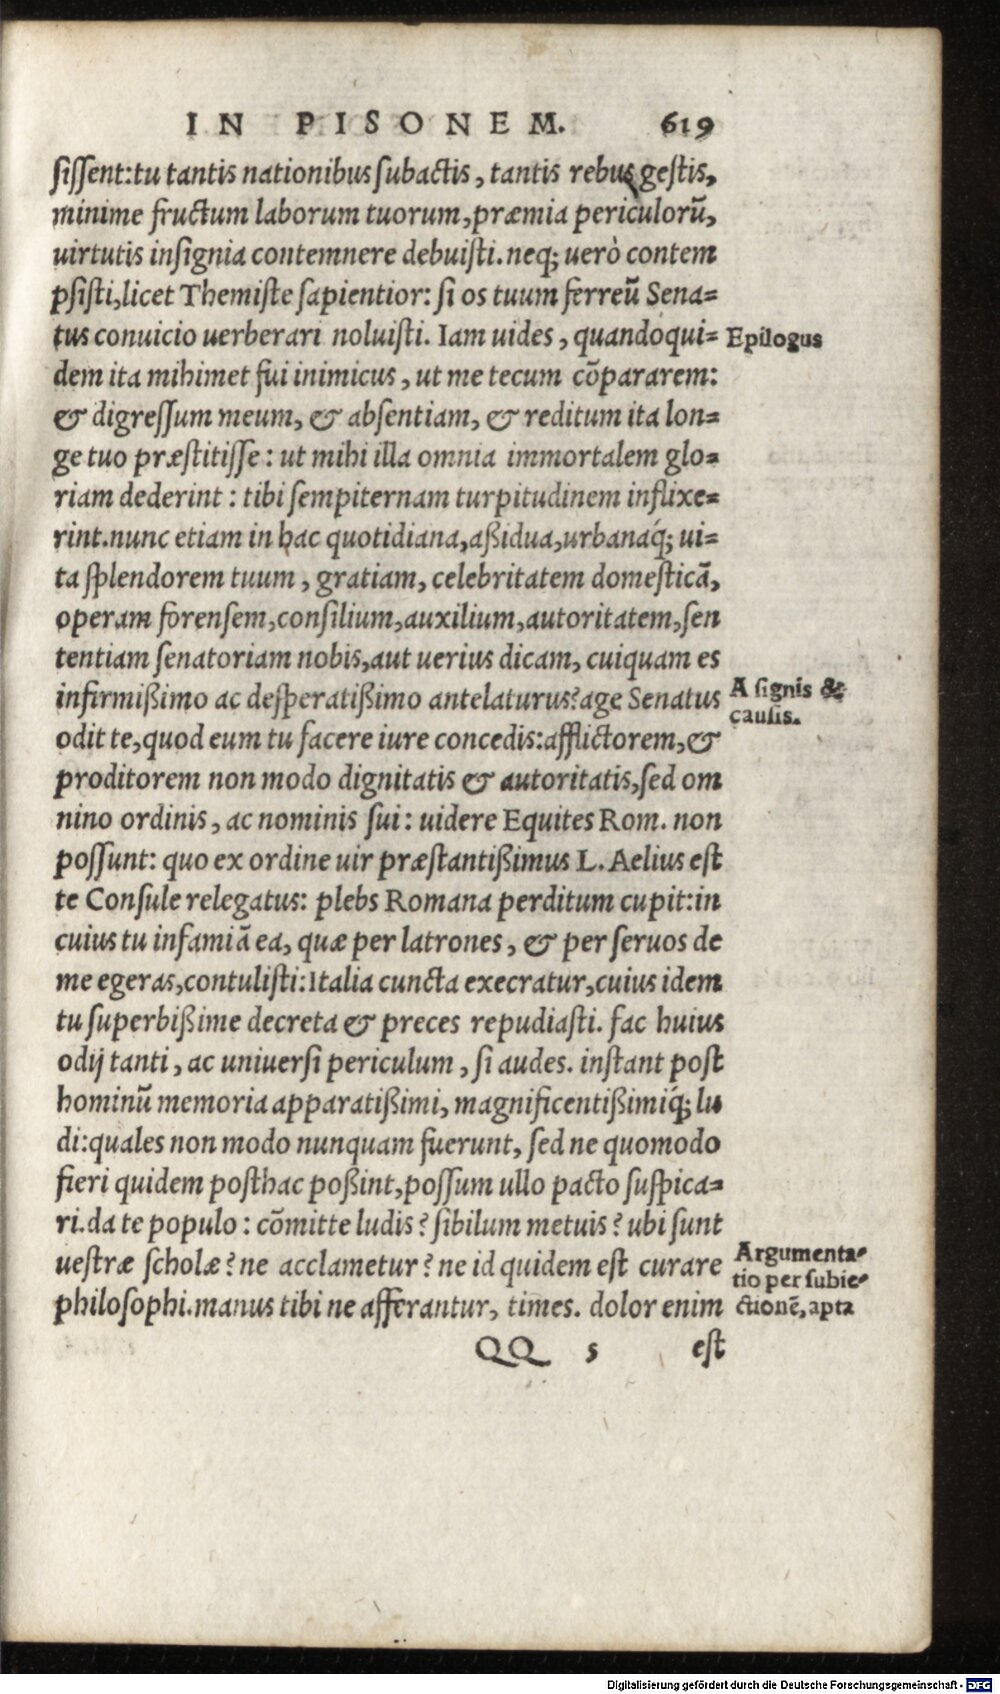 IN PISONEM. 619
sissent:tu tantis nationibus subactis, tantis rebus gestis,
minime fructum laborum tuorum, præmia periculorũ,
uirtutis insignia contemnere debuisti. neq; uerò contem
psisti, licet Themiste sapientior: si os tuum ferreũ Sena=
tus conuicio uerberari noluisti. Iam uides, quandoqui=
Epilogus
dem ita mihimet fui inimicus, ut me tecum cõpararem:
& digressum meum, & absentiam, & reditum ita lon=
ge tuo præstitisse: ut mihi illa omnia immortalem glo=
riam dederint: tibi sempiternam turpitudinem inflixe=
rint. nunc etiam in hac quotidiana, aßidua, urbanaq́; ui=
ta splendorem tuum, gratiam, celebritatem domesticã,
operam forensem, consilium, auxilium, autoritatem, sen
tentiam senatoriam nobis, aut uerius dicam, cuiquam es
infirmißimo ac desperatißimo antelaturus? age Senatus
A signis &
causis.
odit te, quod eum tu facere iure concedis: afflictorem, &
proditorem non modo dignitatis & autoritatis, sed om
nino ordinis, ac nominis sui: uidere Equites Rom. non
possunt: quo ex ordine uir præstantißimus L. Aelius est
te Consule relegatus: plebs Romana perditum cupit: in
cuius tu infamiã ea, quæ per latrones, & per seruos de
me egeras, contulisti: Italia cuncta execratur, cuius idem
tu superbißime decreta & preces repudiasti. fac huius
odij tanti, ac uniuersi periculum, si audes. instant post
hominũ memoria apparatißimi, magnificentißimiq́; lu
di: quales non modo nunquam fuerunt, sed ne quomodo
fieri quidem posthac poßint, possum ullo pacto suspica=
ri. da te populo: cõmitte ludis? sibilum metuis? ubi sunt
uestræ scholæ? ne acclametur? ne id quidem est curare
philosophi. manus tibi ne afferantur, times. dolor enim
Argumenta=
tio per subie=
ctionẽ, apta
QQ 5 est
Digitalisierung gefördert durch die Deutsche Forschungsgemeinschaft - DFG